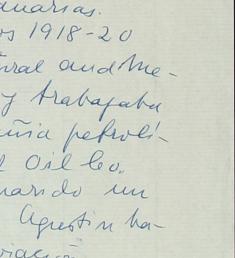 anarias.
os 1918-20
ural and Me-
y trabajaba
añia petrolí-
l Oil Co.
uando un
Agustin ha-